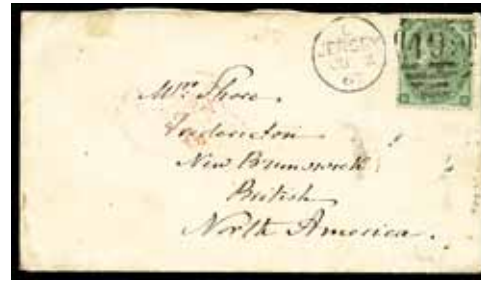 JERSEY
Mrs. Shore.
Fredericton
New Brunswick
British
North America.